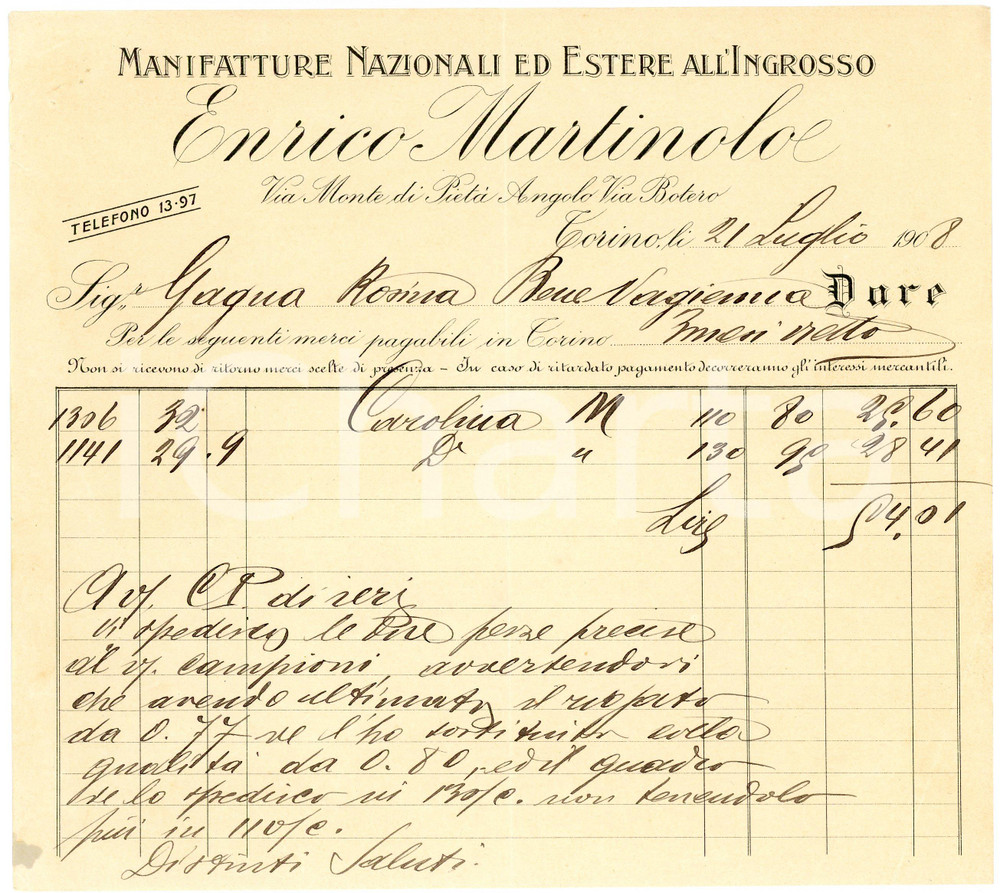 MANIFATTURE NAZIONALI ED ESTERE ALL'INGROSSO
Enrico Martinolo
Via Monte di Pietà Angolo Via Botero
TELEFONO 13-97
Torino, li 21 Luglio 1908
Sig.r Gagna Rosina Bene Vagienna Dare
Per le seguenti merci pagabili in Torino 3 mesi netto
Non si ricevono di ritorno merci scelte di presenza - In caso di ritardato pagamento decorreranno gli interessi mercantili.
1306 32 Carolina M 110 80 25.60
1141 29.9 Do " 130 95 28 41
Lire 54.01
A vs. CP. di ieri
vi spedisco le due pezze precise
ai vs. campioni, avvertendovi
che avendo ultimato il rigato
da 0.77 ve l'ho sostituito colla
qualità da 0.80, ed il quadro
ve lo spedisco in 130/c. non tenendolo
più in 110/c.
Distinti Saluti.
iCharta